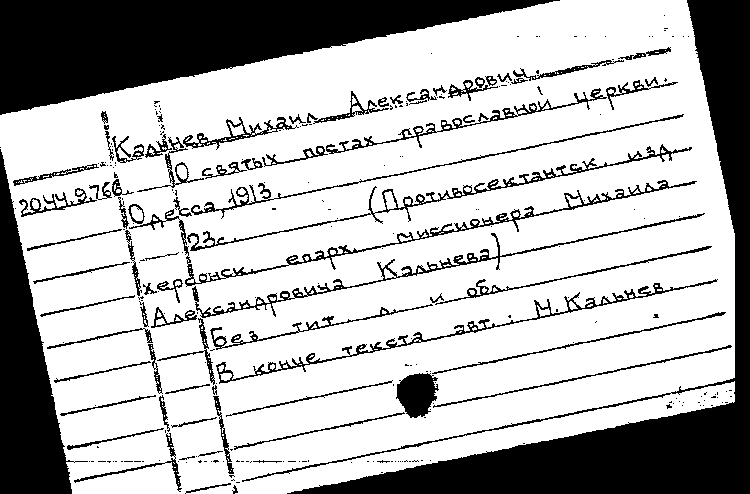 Кальнев, Михаил Александрович.
О святых постах православной церкви.
20.44.9.766.
Одесса, 1913.
23с. (Противосектантск. изд.
херсонск. епарх. миссионера Михаила
Александровича Кальнева)
Без тит. л. и обл.
В конце текста авт.: М. Кальнев.